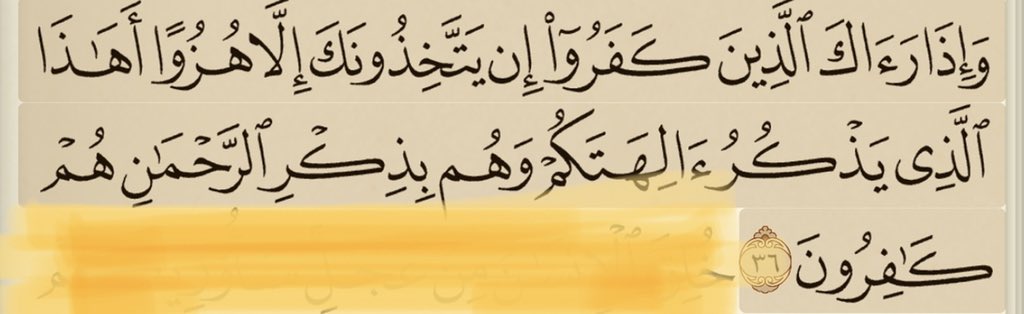 وَإِذَا رَءَاكَ ٱلَّذِينَ كَفَرُوٓا۟ إِن يَتَّخِذُونَكَ إِلَّا هُزُوًا أَهَـٰذَا
ٱلَّذِى يَذْكُرُ ءَالِهَتَكُمْ وَهُم بِذِكْرِ ٱلرَّحْمَـٰنِ هُمْ
كَـٰفِرُونَ ٣٦